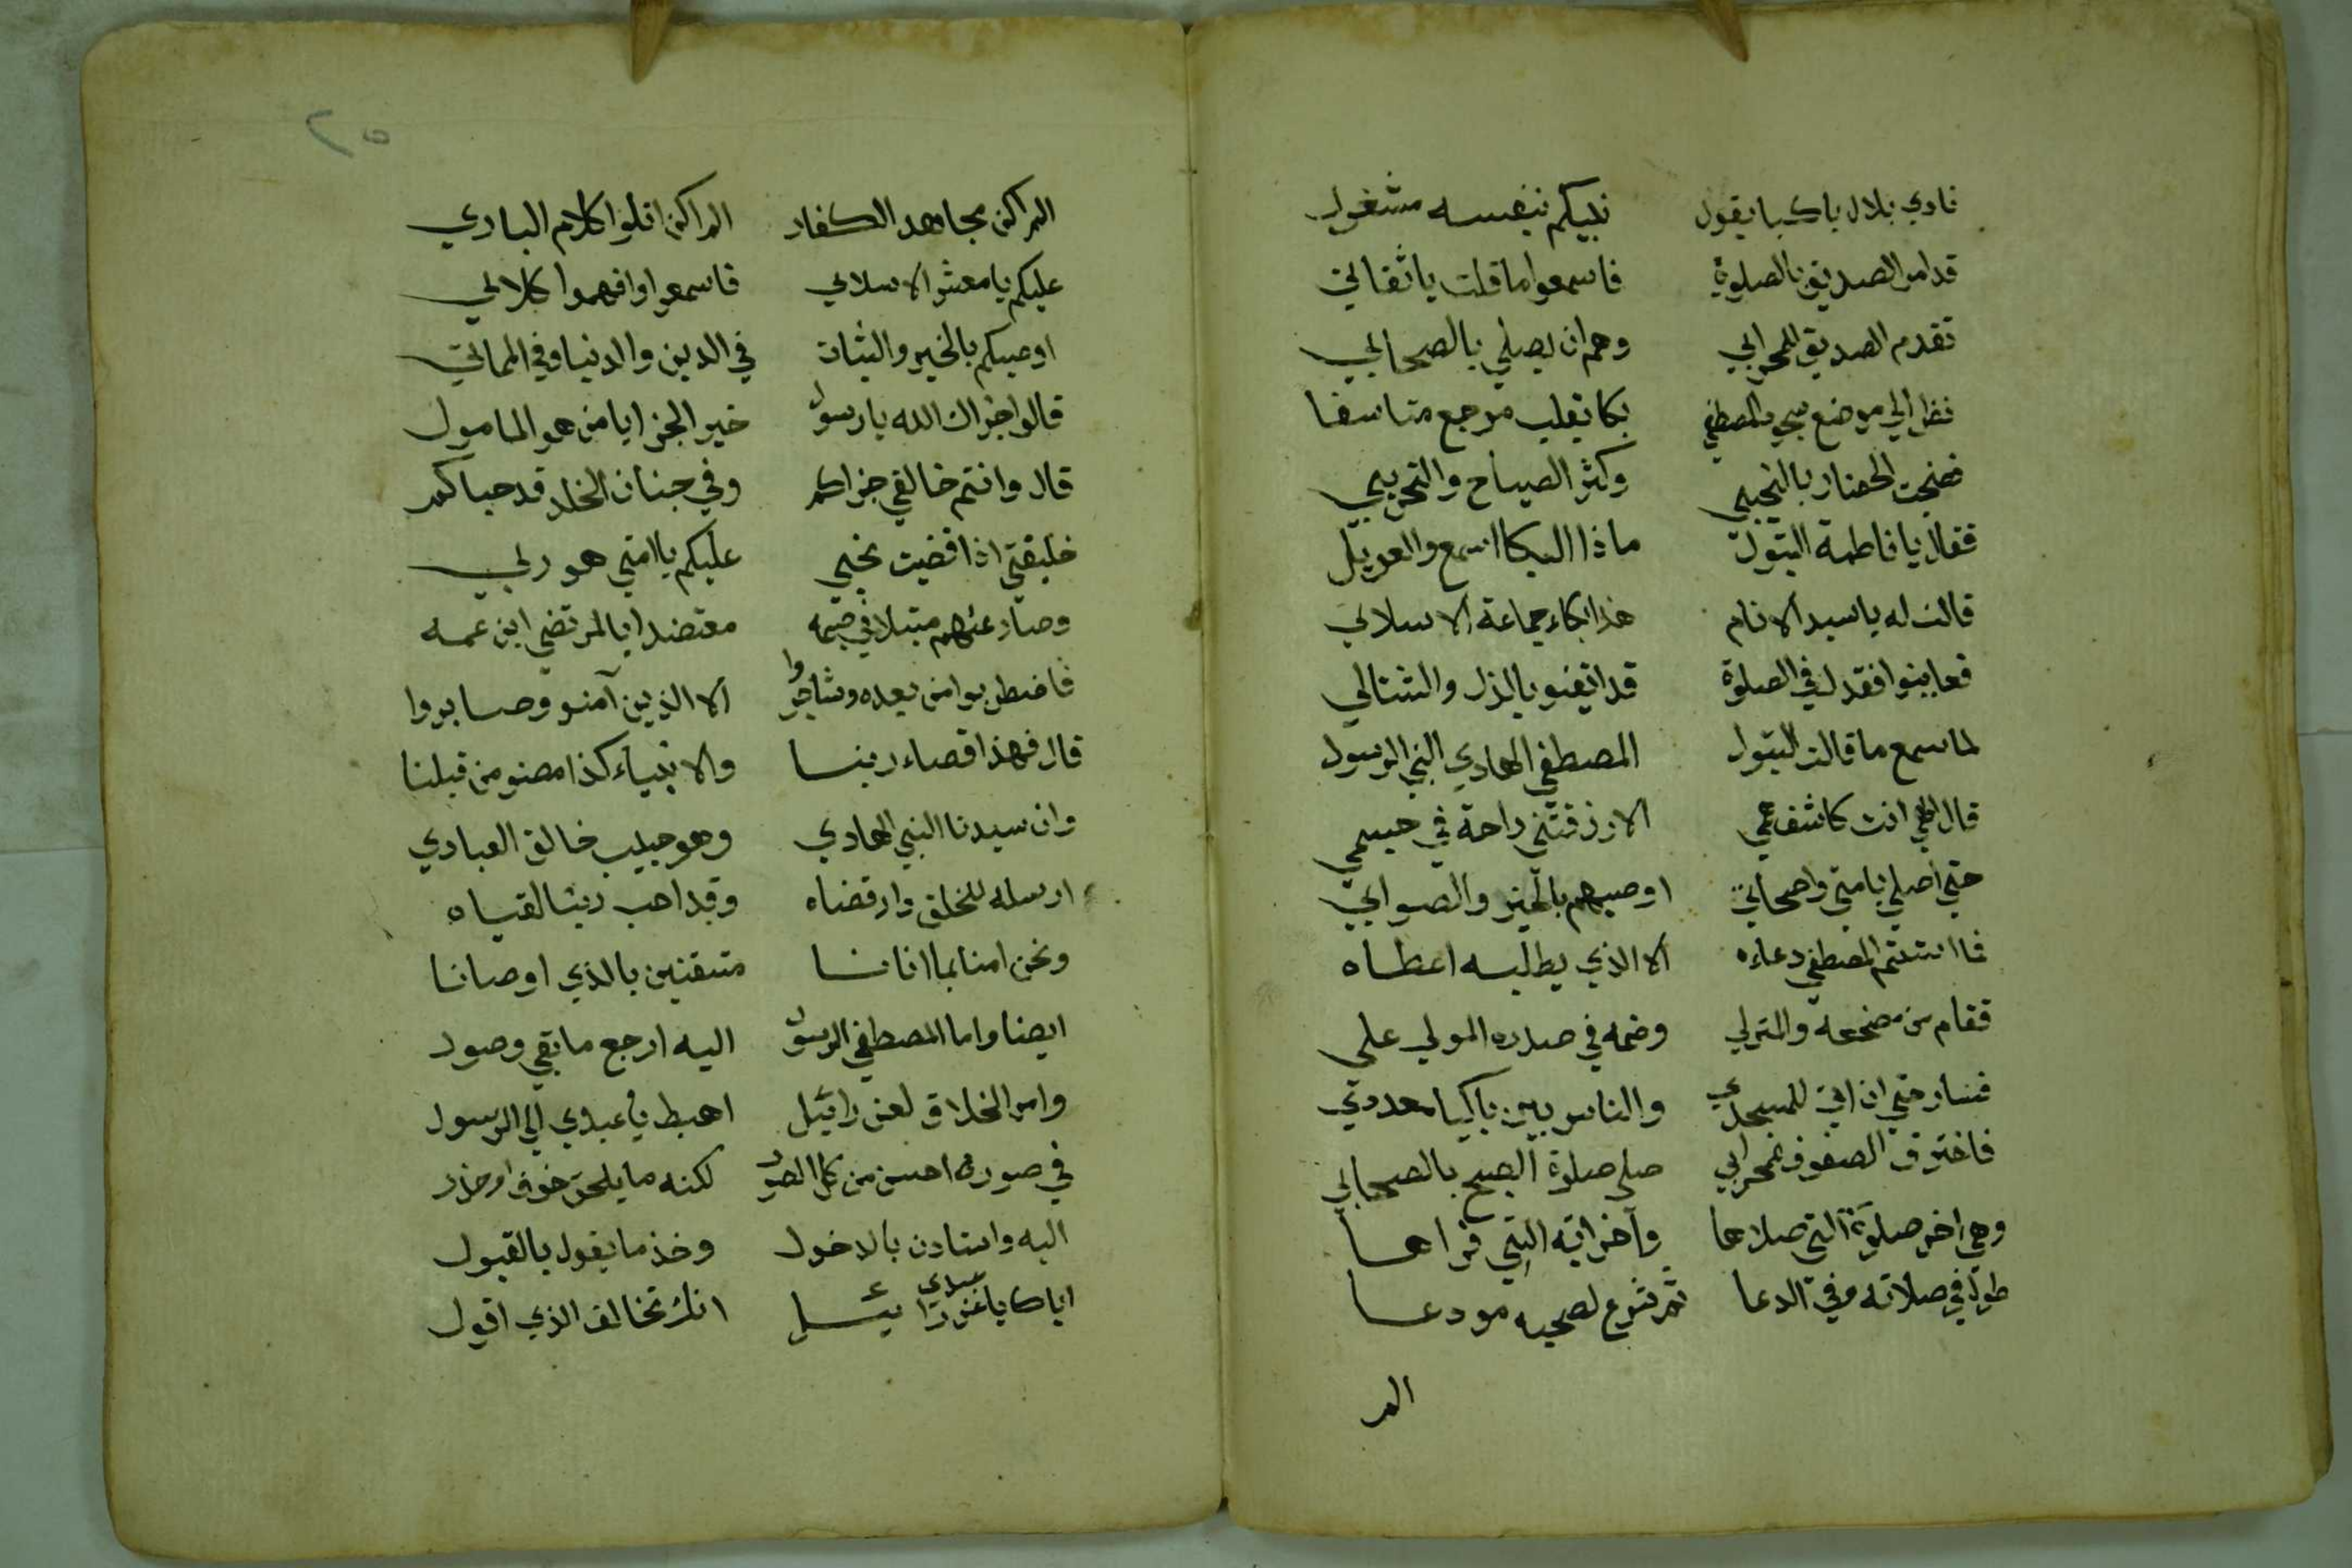 نادي بلال باكيا يقول نبيكم بنفسه مشغول
قد امر الصديق بالصلوة فاسمعوا ما قلت يا ثقاتي
تقدم الصديق للمحرابي وهم ان يصلي بالصحابي
نظر الي موضع سجود المصطفي بكا بقلب موجع متاسفا
فضجت الحضار بالنحيبي وكثر الصياح والتحريبي
فقال يا فاطمة البتول ماذا البكا اسمع والعويل
قالت له يا سيد الانام هذا بكاء جماعة الاسلامي
فعاينوا فقدك في الصلوة قد ايقنو بالذل والشتاتي
لما سمع ما قالت البتول المصطفي الهادي النبي الرسول
قال الهي انت كاشف غمي الا رزقتني راحة في جسمي
حتي اصلي بامتي واصحابي اوصيهم بالخير والصوابي
فما استتم المصطفي دعاءه الا الذي يطلبه اعطاه
فقام من مضجعه والمنزلي وضمه في صدره المولي علي
فسار حتي ان اتي للمسجدي والناس بين باكيا معددي
فاخترق الصفوف للمحرابي صلي صلوة الصبح بالصحابي
وهي اخر صلوة التي صلاها وآخر اية التي قراها
طول في صلاته وفي الدعا ثم شرع لصحبه مودعا
الم
٢٥
الم اكن مجاهد الكفار الم اكن اتلوا كلام الباري
عليكم يا معشر الاسلامي فاسمعوا وافهموا كلامي
اوصيكم بالخير والثبات في الدين والدنيا وفي المماتي
قالوا جزاك الله يا رسول خير الجزا يا من هو المامول
قال وانتم خالقي جزاكم وفي جنان الخلد قد حباكم
خليفتي اذا قضيت نحبي عليكم يا امتي هو ربي
وصار عندهم مقبلا في ضمه معتضدا بالمرتضي ابن عمه
فاضطربوا من بعده وتشاجروا الا الذين آمنو وصابروا
قال فهذا قضاء ربنا والانبياء كذا مضو من قبلنا
وان سيدنا النبي الهادي وهو حبيب خالق العبادي
ارسله للخلق وارتضاه وقد احب ربنا لقياه
ونحن امنا بما اتانا متيقنين بالذي اوصانا
ايضا واما المصطفي الرسول اليه ارجع ما بقي وصول
وامر الخلاق لعزرائيل اهبط يا عبدي الي الرسول
في صورة احسن من كل الصور لكنه ما يلحق خوف او حذر
اليه واستاذن بالدخول وخذ ما يقول بالقبول
اياك يا عبدي عزرائيل انك تخالف الذي اقول